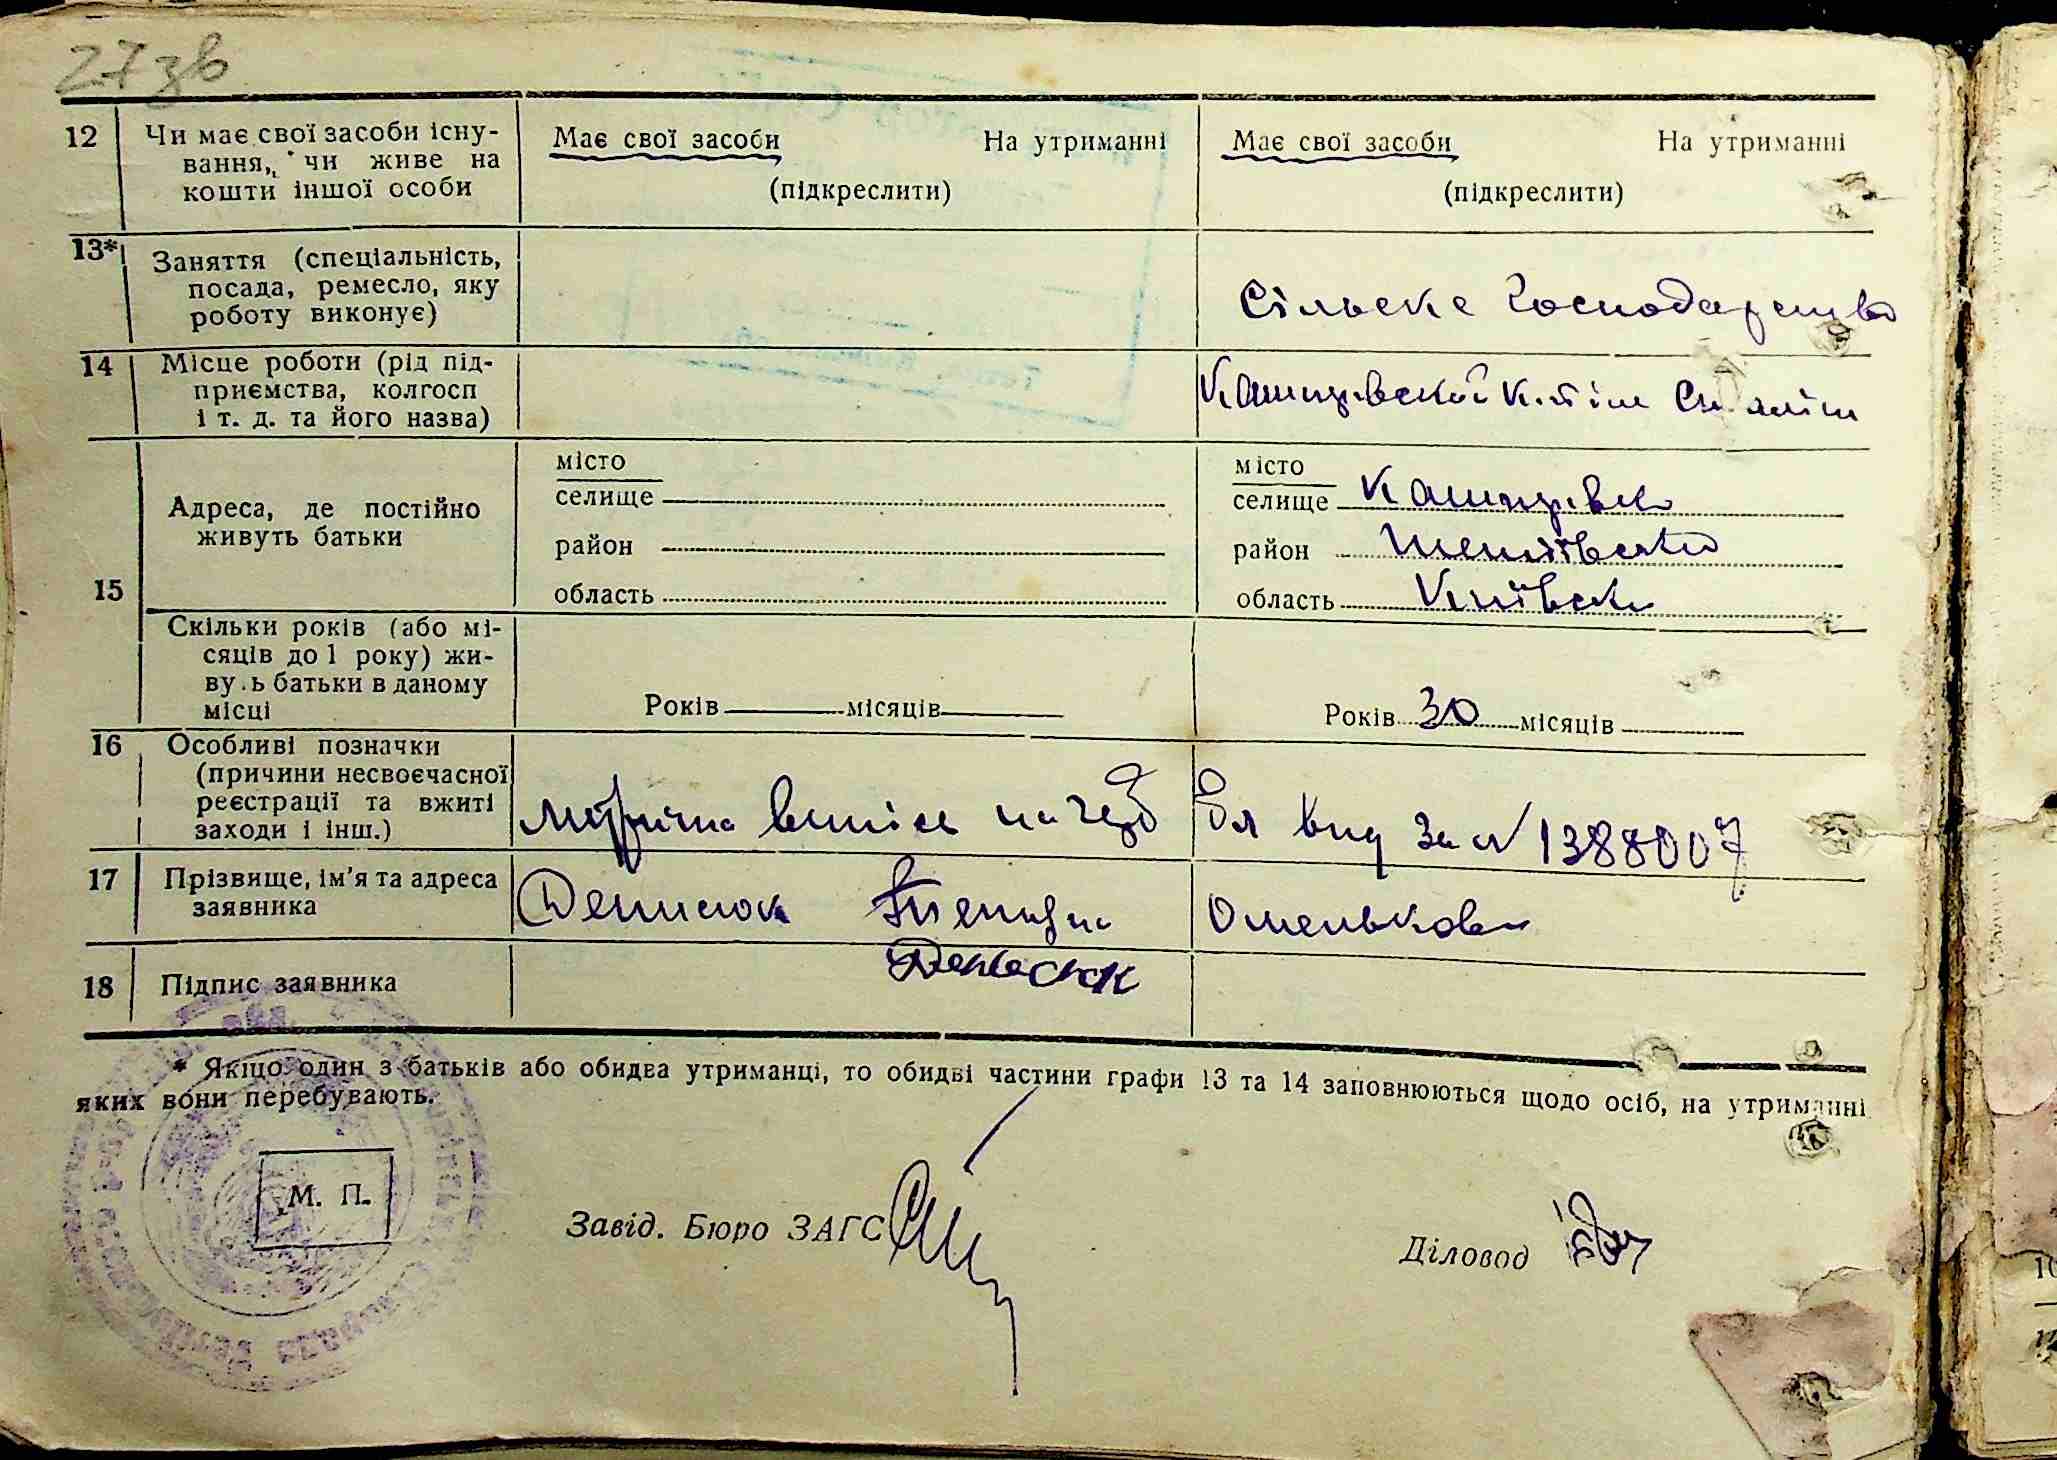 27 зв
12 Чи має свої засоби існу-
вання, чи живе на
кошти іншої особи
Має свої засоби На утриманні
(підкреслити)
Має свої засоби На утриманні
(підкреслити)
13* Заняття (спеціальність,
посада, ремесло, яку
роботу виконує)
Сільске Господарство
14 Місце роботи (рід під-
приємства, колгосп
і т. д. та його назва)
15
Адреса, де постійно
живуть батьки
місто
селище
район
область
місто
селище
район
область Київська
Скільки років (або мі-
сяців до 1 року) жи-
вуть батьки в даному
місці
Років місяців
Років 30 місяців
16 Особливі позначки
(причини несвоєчасної
реєстрації та вжиті
заходи і інш.)
за № 1388007
17 Прізвище, ім'я та адреса
заявника
Денисюк
18 Підпис заявника
Денисюк
* Якщо один з батьків або обидва утриманці, то обидві частини графи 13 та 14 заповнюються щодо осіб, на утриманні
яких вони перебувають.
М. П.
Завід. Бюро ЗАГС
Діловод